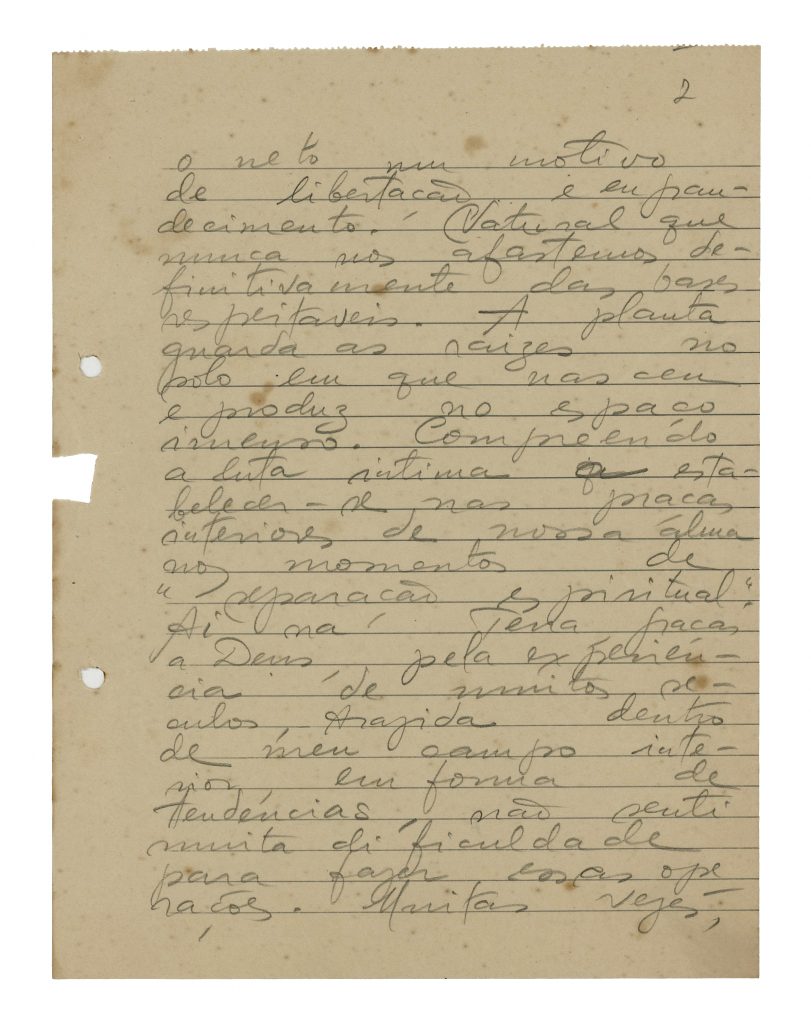 2
o neto num motivo
de libertação e engran-
decimento. Natural que
nunca nos afastemos de-
finitivamente das bases
respeitaveis. A planta
guarda as raizes no
solo em que nasceu
e produz no espaço
imenso. Compreendo
a luta intima esta-
belecer-se nas praças
interiores de nossa alma
nos momentos de
"separação espiritual".
Ai na Terra, graças
a Deus, pela experiên-
cia de muitos se-
culos, trazida dentro
de meu campo inte-
rior, em forma de
tendências, não senti
muita dificuldade
para fazer essas ope
rações. Muitas vezes,